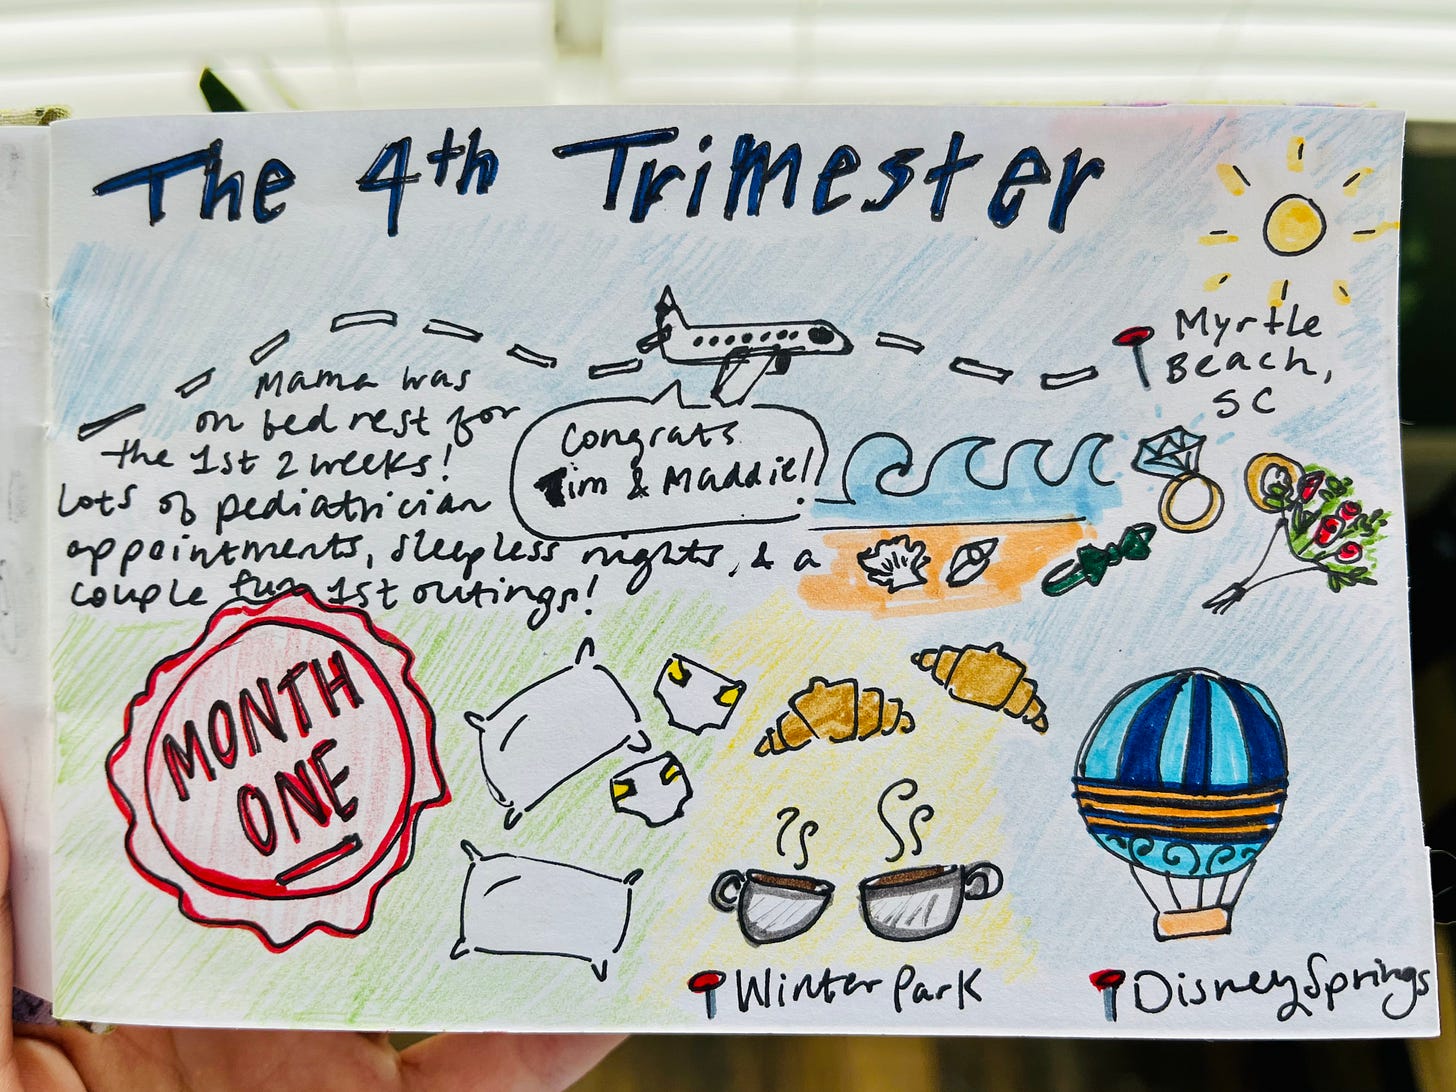 The 4th Trimester
Myrtle
Beach,
SC
Mama was
on bed rest for
the 1st 2 weeks!
Lots of pediatrician
appointments, sleepless nights, & a
couple fun 1st outings!
Congrats
Tim & Maddie!
MONTH
ONE
Winter Park
Disney Springs